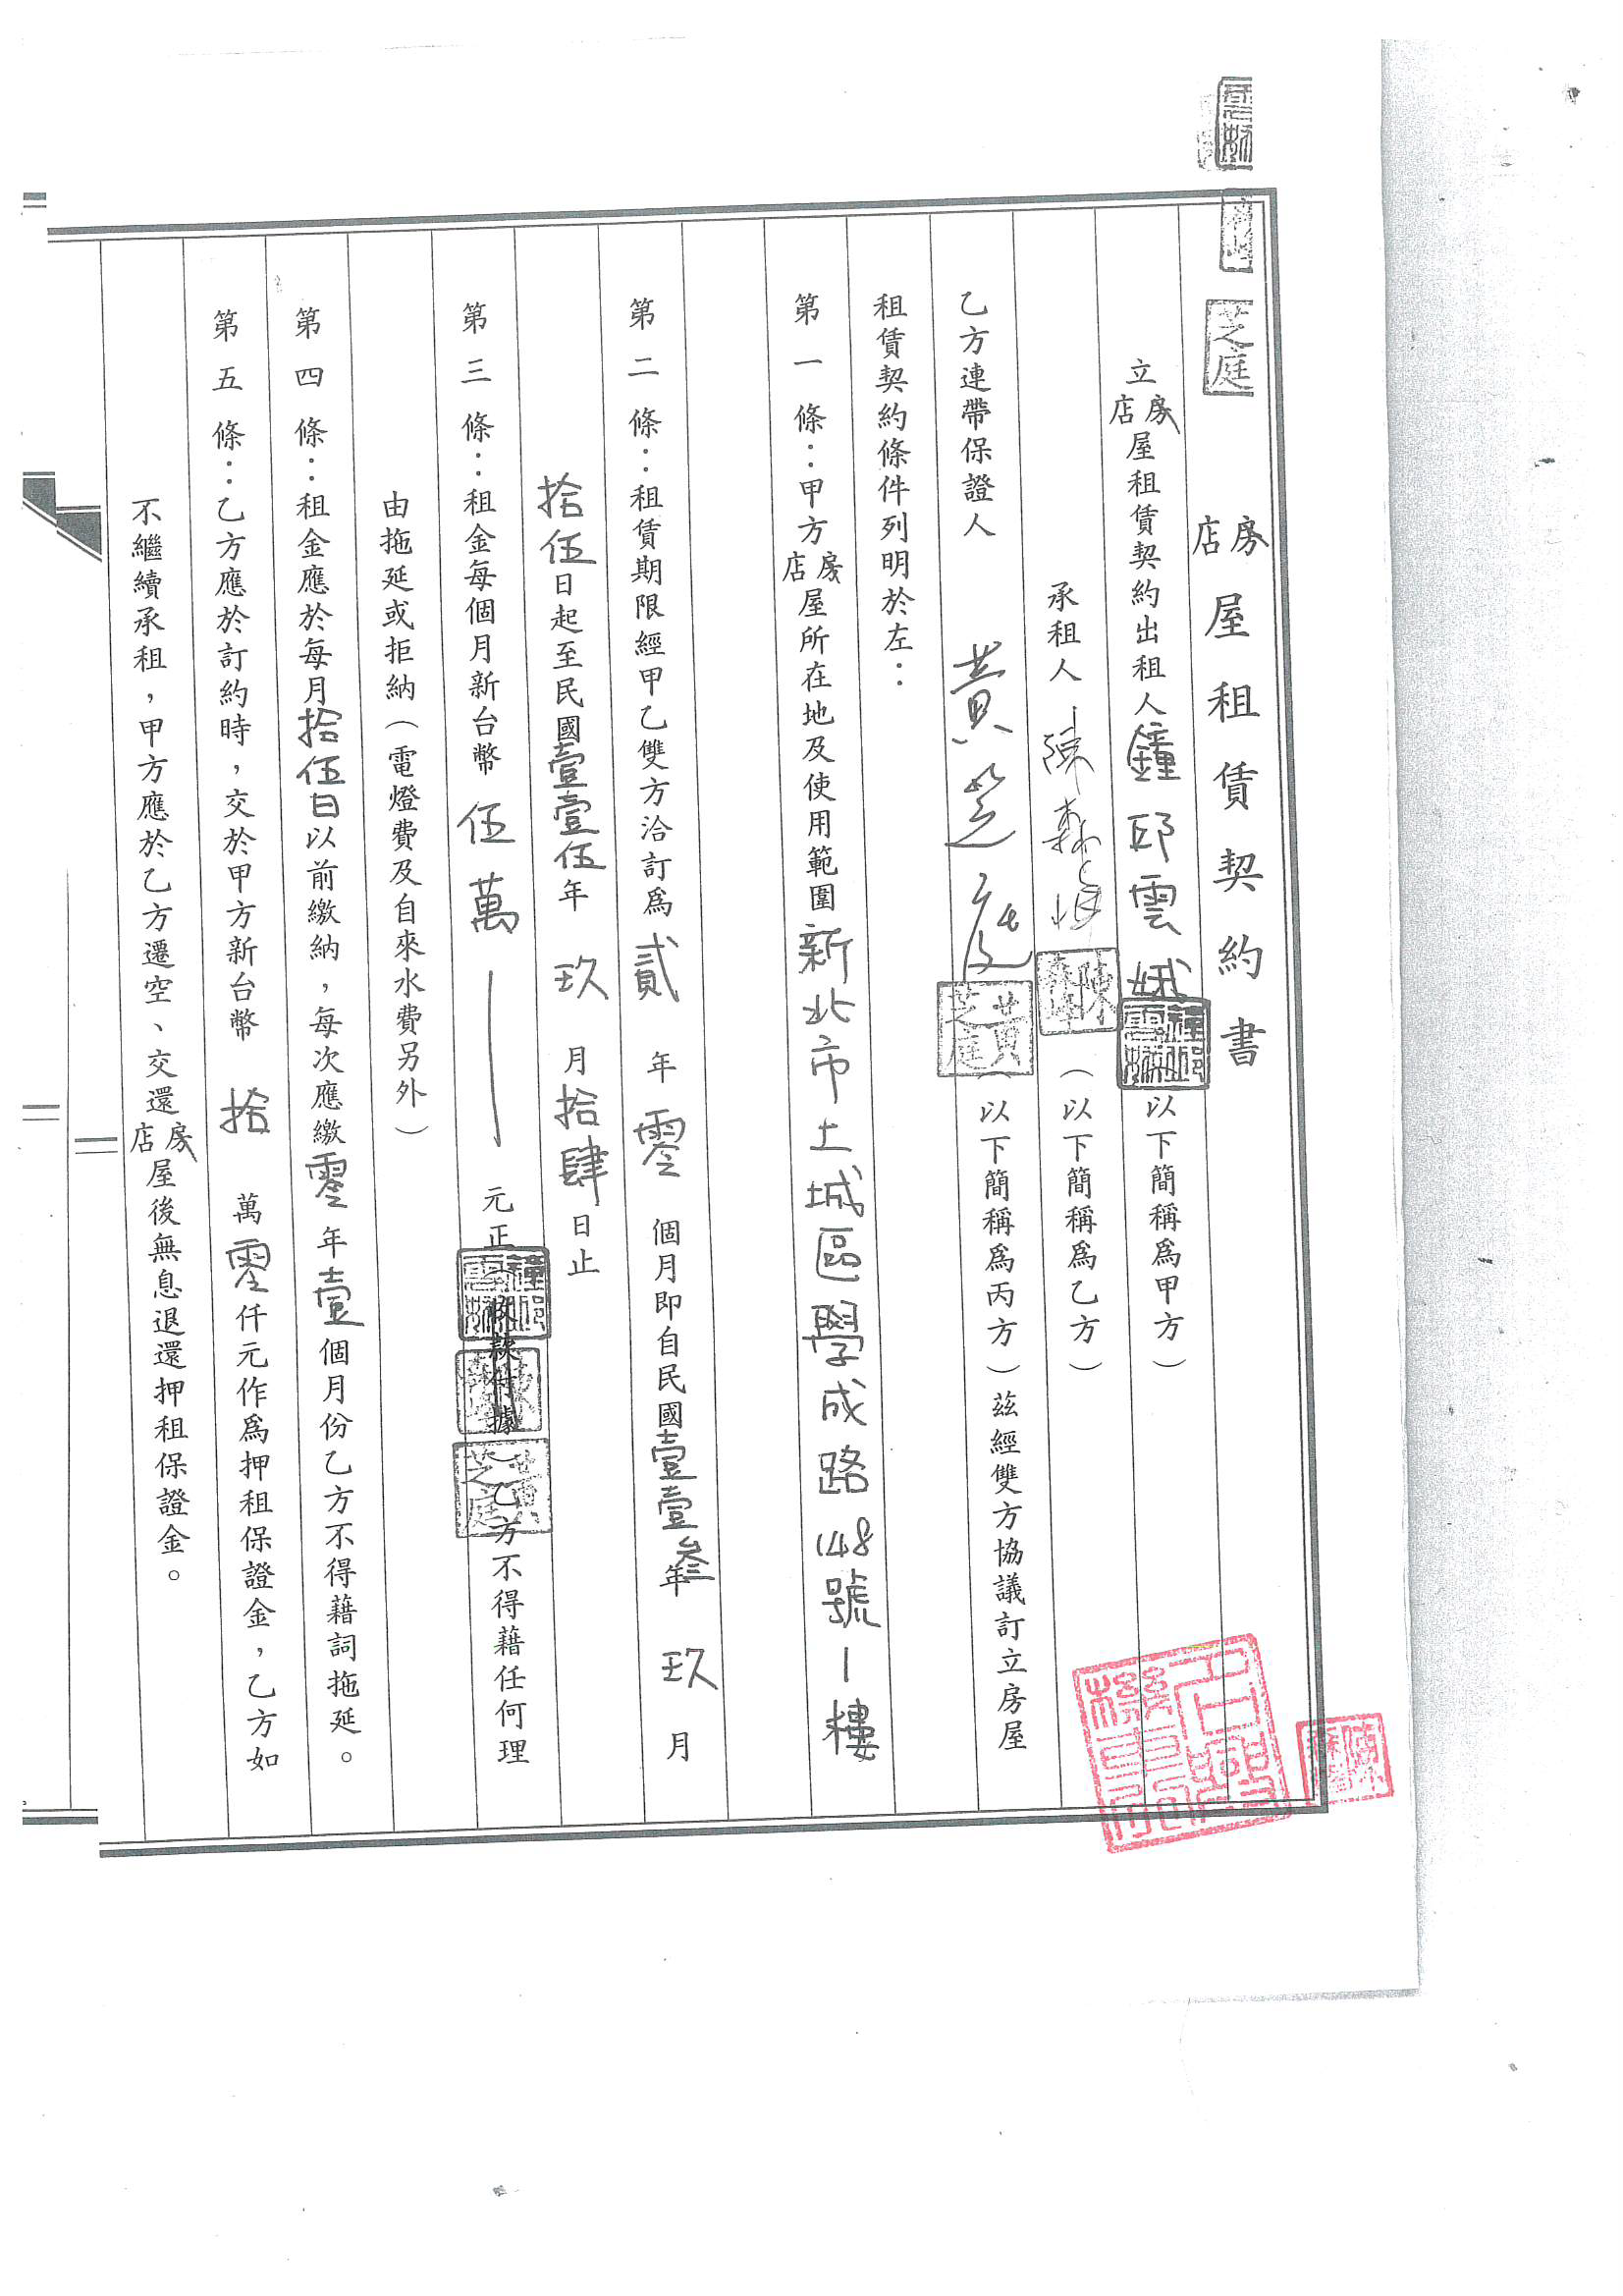 芝庭
房店屋租賃契約書
立房店屋租賃契約出租人鐘邱雲娥（以下簡稱為甲方）
承租人陳（以下簡稱為乙方）
乙方連帶保證人 黃芝庭（以下簡稱為丙方）茲經雙方協議訂立房屋
租賃契約條件列明於左：
第一條：甲方房店屋所在地及使用範圍新北市土城區學成路148號1樓
第二條：租賃期限經甲乙雙方洽訂為貳年零個月即自民國壹壹參年玖月
拾伍日起至民國壹壹伍年玖月拾肆日止
第三條：租金每個月新台幣伍萬元正（收款付據）乙方不得藉任何理
由拖延或拒納（電燈費及自來水費另外）
第四條：租金應於每月拾伍日以前繳納，每次應繳零年壹個月份乙方不得藉詞拖延。
第五條：乙方應於訂約時，交於甲方新台幣拾萬零仟元作為押租保證金，乙方如
不繼續承租，甲方應於乙方遷空、交還房店屋後無息退還押租保證金。
黃芝庭
黃芝庭